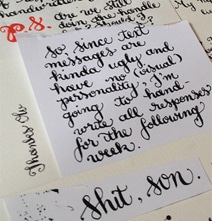 handwriti
P.S.
Are we still
doing the handle
So since text
messages are
kinda ugly and
have no (visual)
personality, I'm
going to hand-
write all responses
for the following
week.
Thanks Oh,
shit, son.